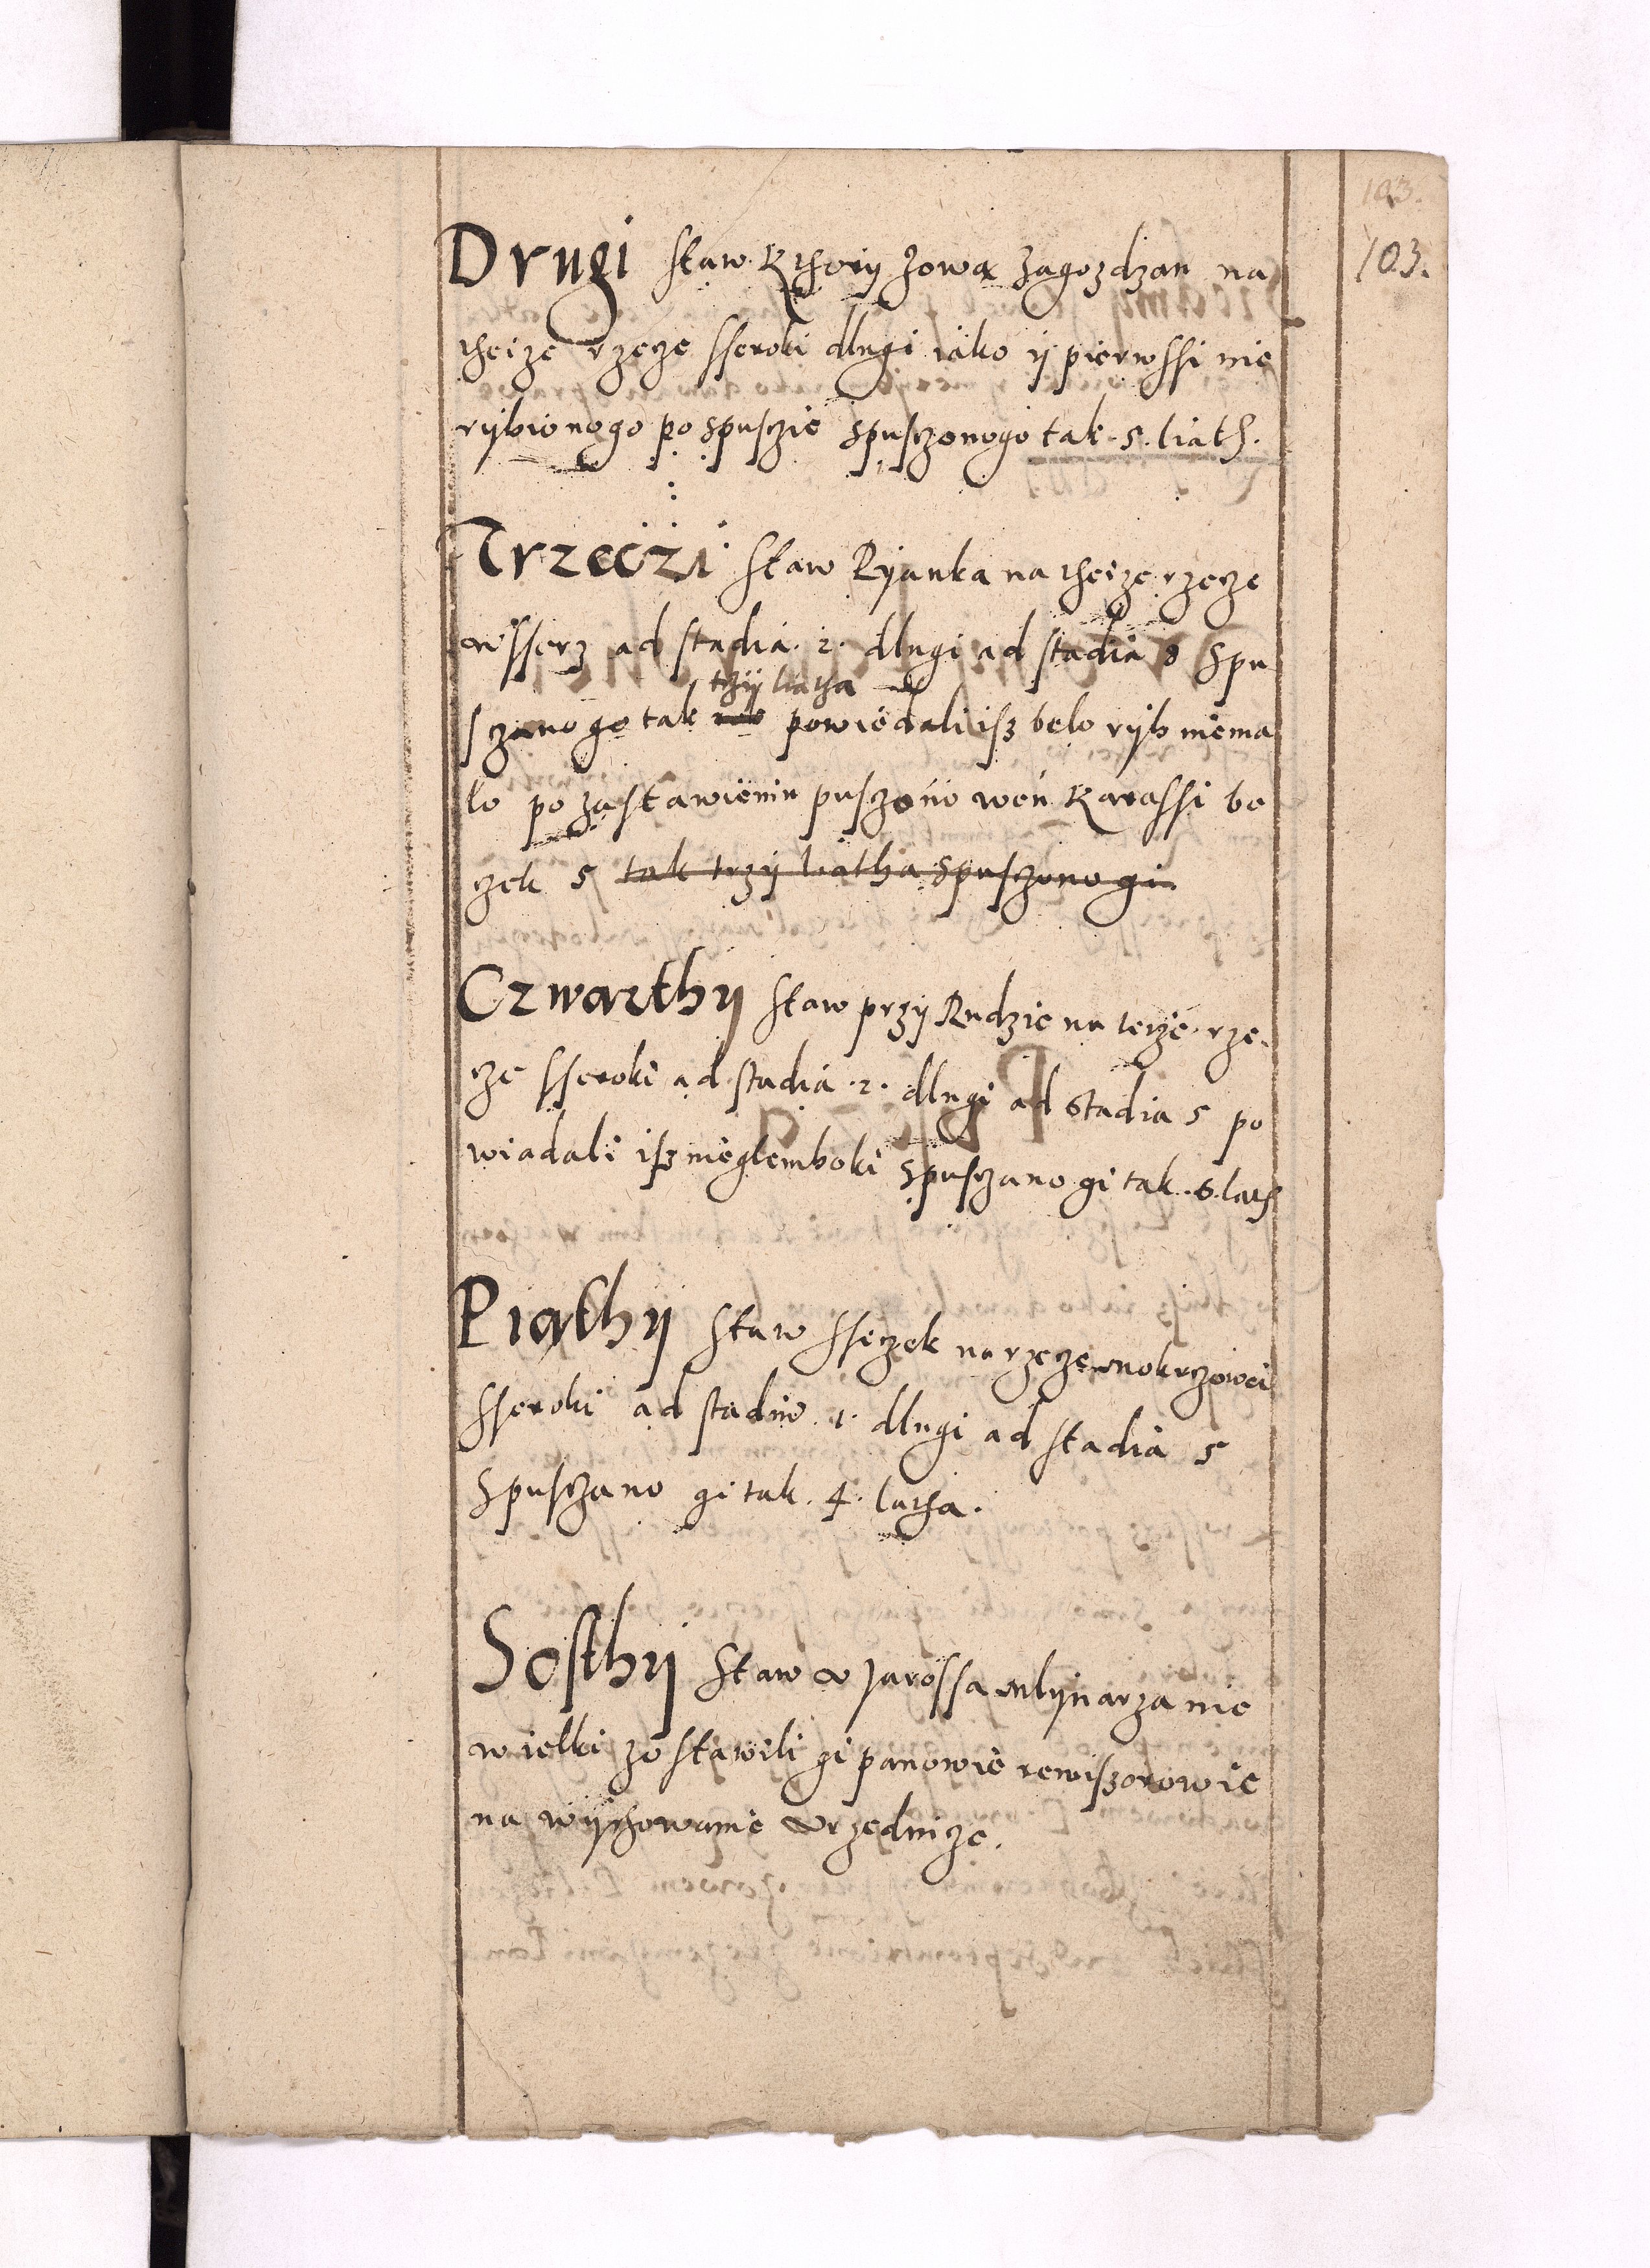 103.
103.
Drugi staw kthory zową zagozdzon na
theize rzecze sseroki dlugi iako ÿ pierwssi nie
rÿbiono go po spusczie spusczono go tak .5. liath.
Trzeczi staw Pÿanka na theize rzecze
wsserz ad stadia .2. dlugi ad stadia 8 spu
trzÿ liatha
sczano go tak powiedali isz belo rÿb niema
lo po zastawieniu pusczono weń karassi be
czek 5 tak trzÿ liatha spusczono gi
Czwarthÿ staw przÿ Rudzie na teize rze
cze sseroki ad stadia .2. dlugi ad stadia 5 po
wiadali isz nieglemboki spusczano gi tak .6. lath
Piathÿ staw na rzecze mokrzowei
sseroki ad stadiu .1. dlugi ad stadia 5
spusczano gi tak .4. latha.
Sosthÿ staw v Jarossa mlÿnarza nie
wielki zostawili gi panowie rewiszorowie
na wÿchowanie vrzednicze.